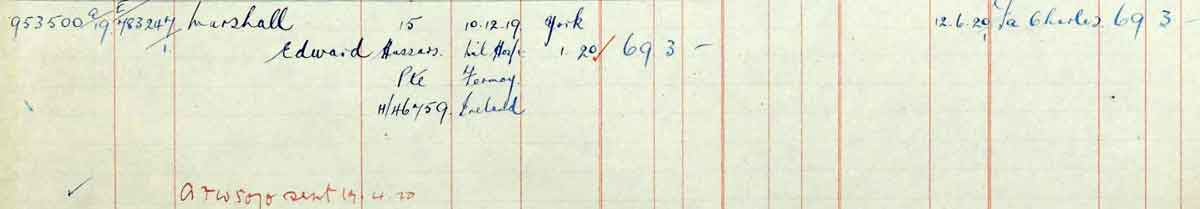 953500/19 E/783247/1. Marshall 15 10.12.19. York 12.6.20 Fa Charles. 69 3 –
Edward Hussars. Mil Hosp. 1.20 69 3 –
Pte Fermoy.
H/46759. Ireland
AFW5070 sent 19.4.20